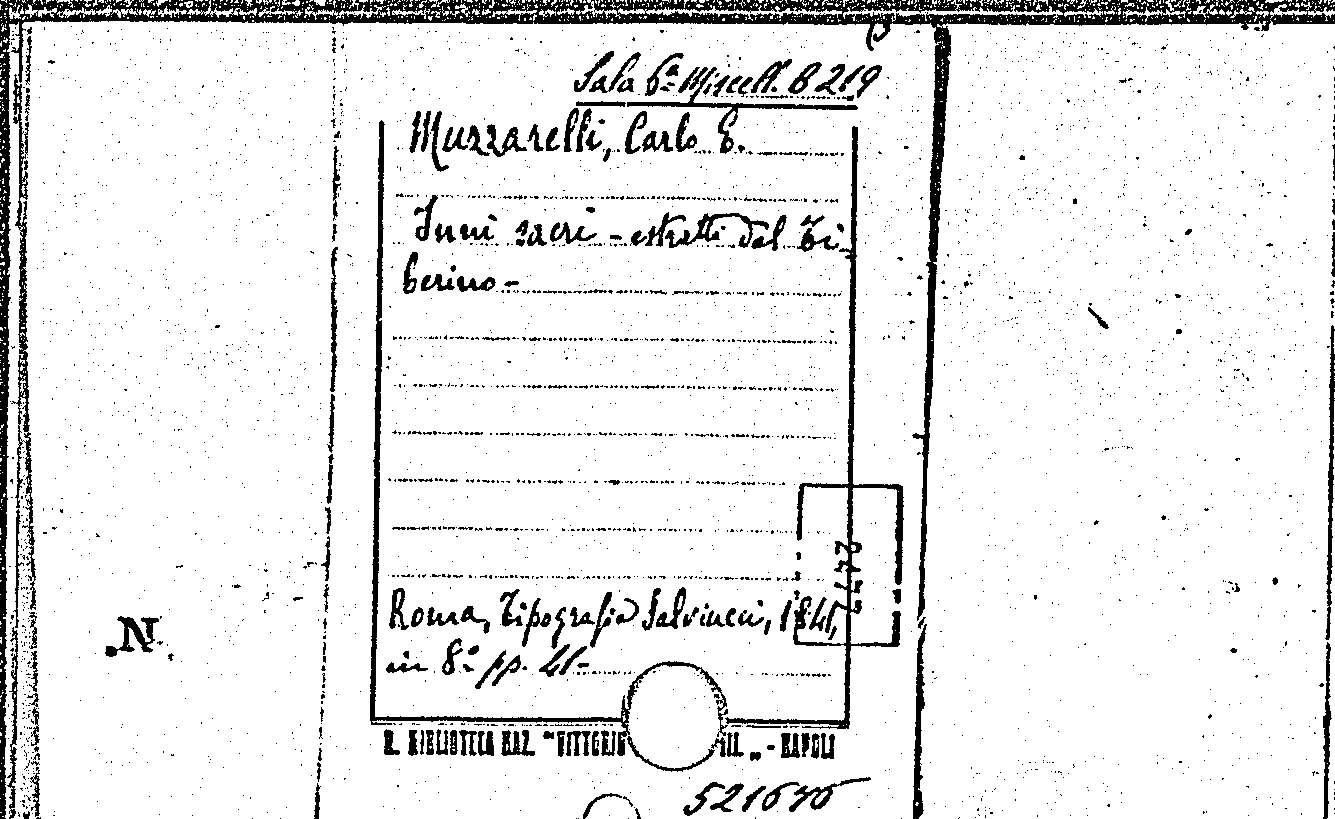 Sala 6ª Miscell. B 219
Muzzarelli, Carlo E.
Inni sacri - estratti dal Ti-
berino -
Roma, Tipografia Salviucci, 1841,
in 8.º pp. 41-
R. BIBLIOTECA NAZ. "VITTORIO III. „ - NAPOLI
.N.